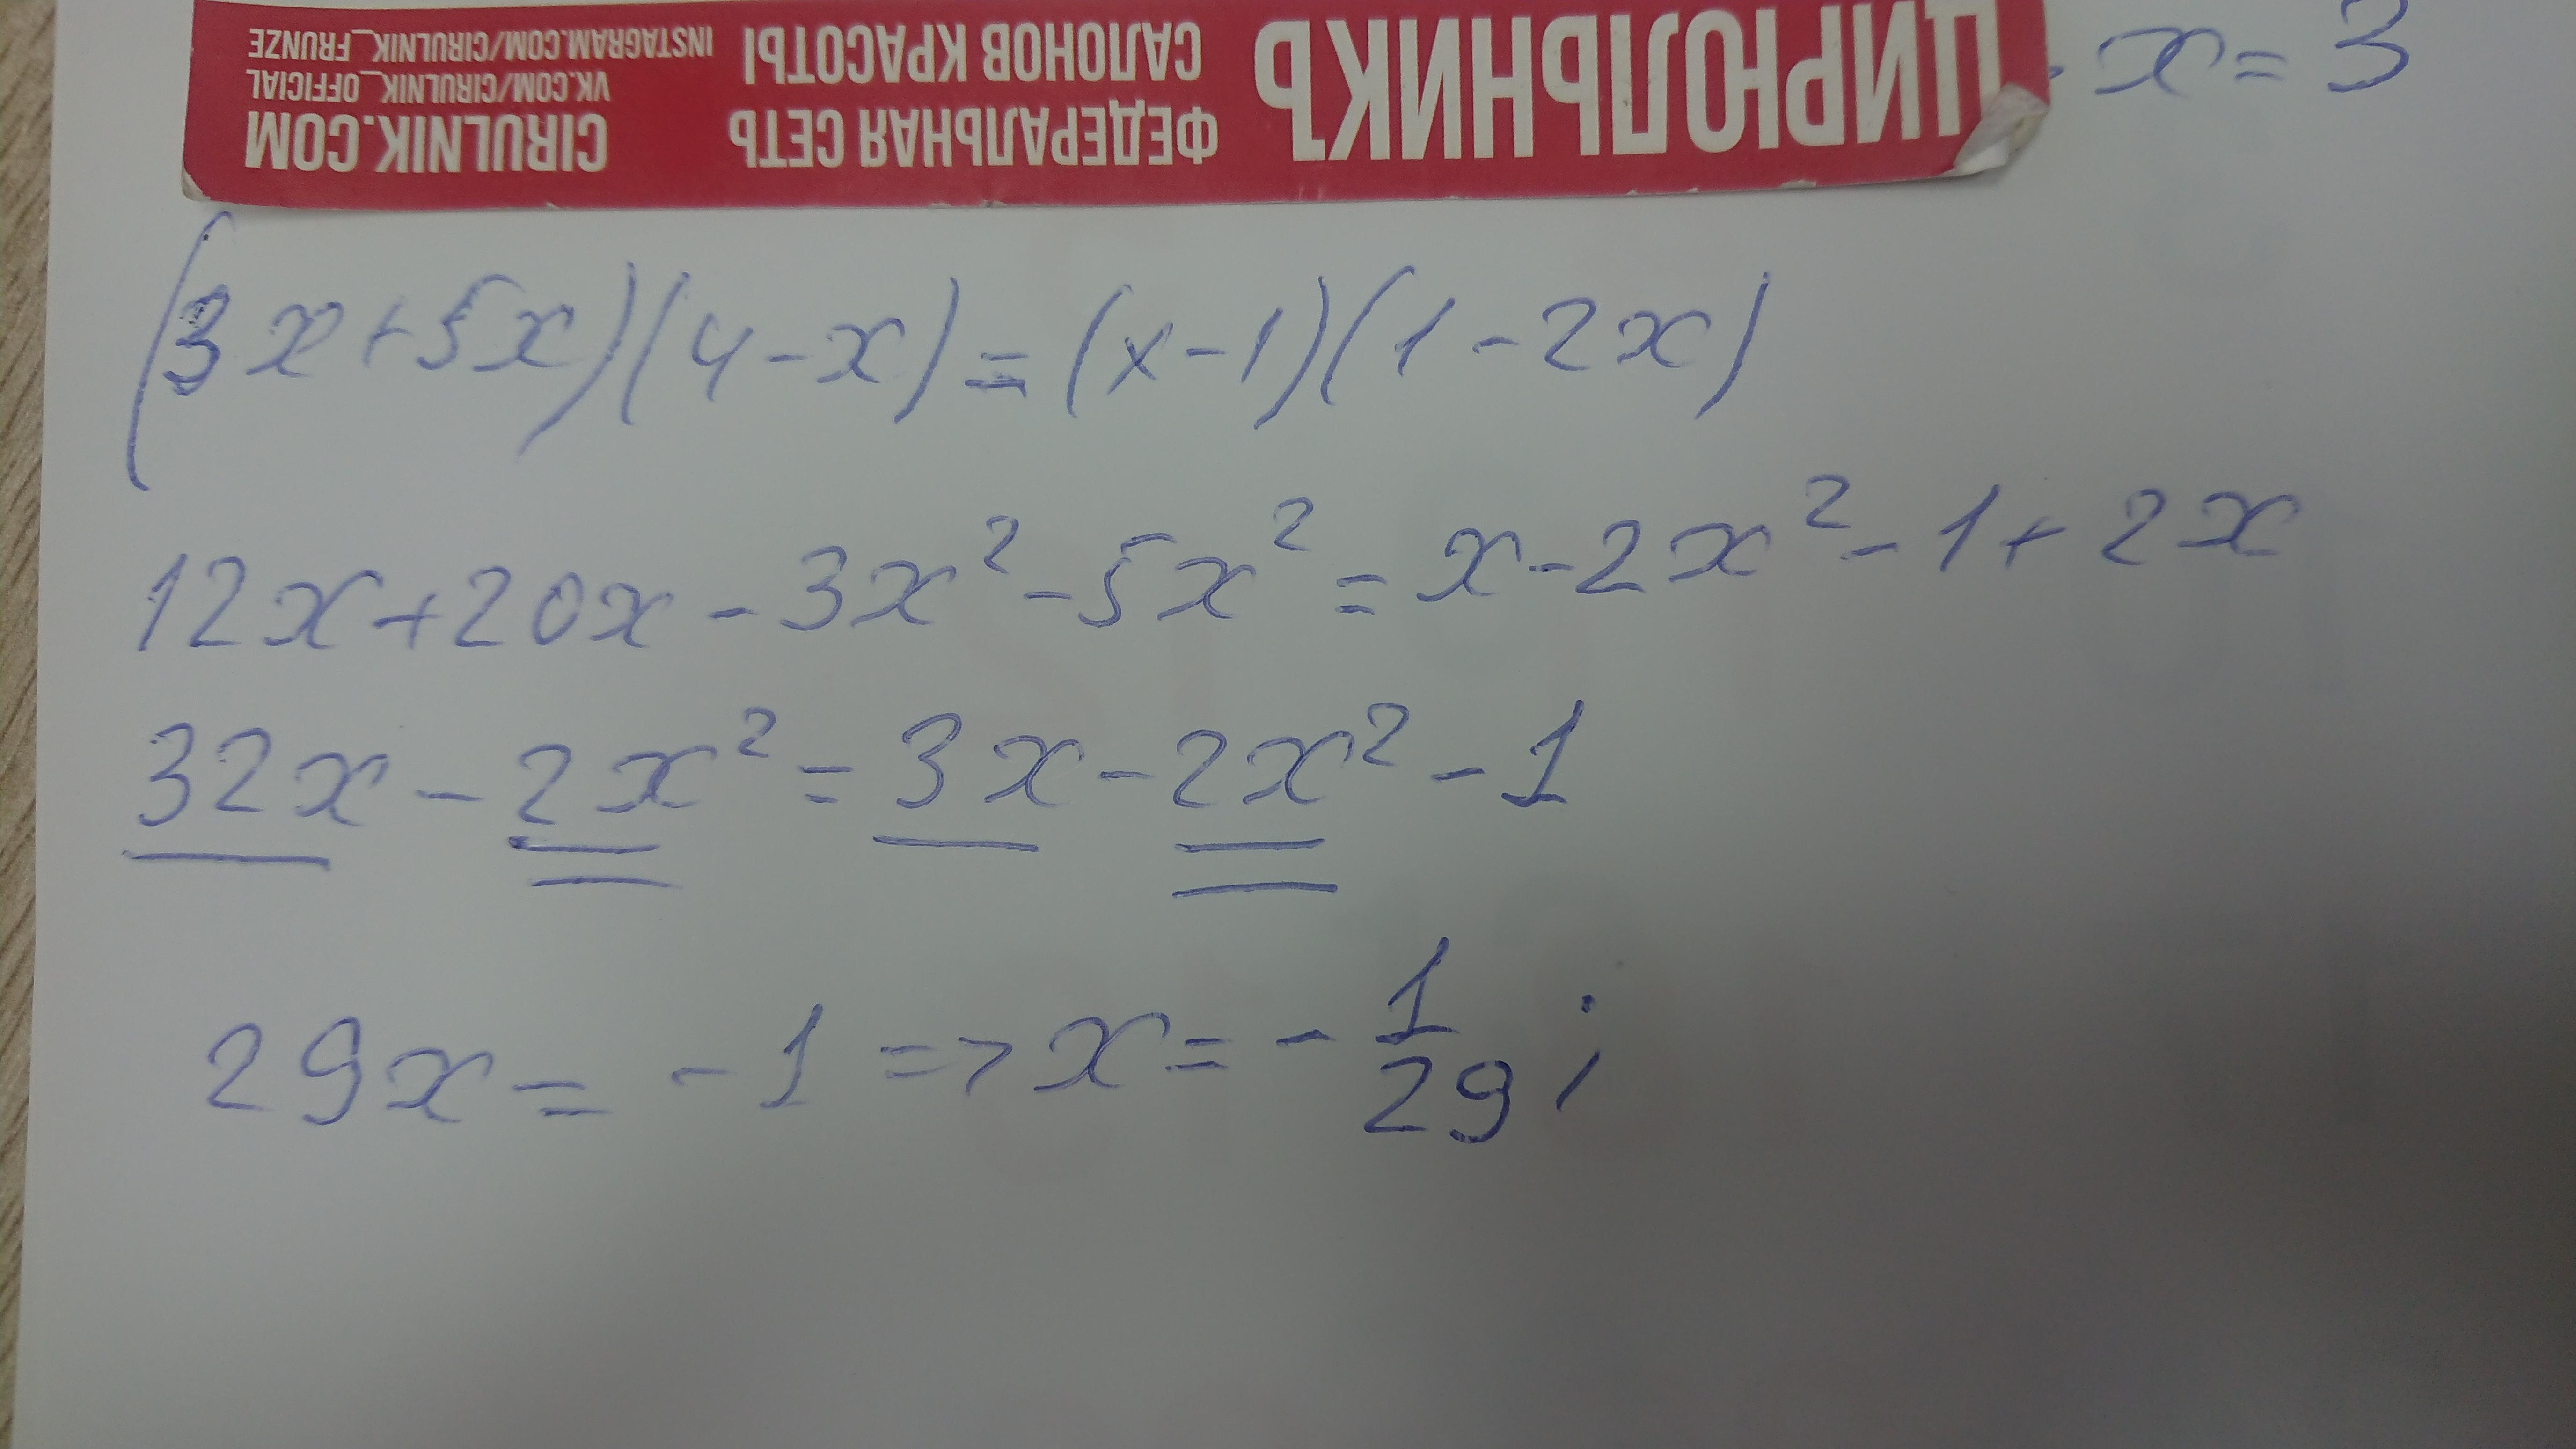 CIRULNIK.COM ФЕДЕРАЛЬНАЯ СЕТЬ САЛОНОВ КРАСОТЫ ЦИРЮЛЬНИКЪ
VK.COM/CIRULNIK_OFFICIAL
INSTAGRAM.COM/CIRULNIK_FRUNZE
x = 3
(3x+5x)(4-x)=(x-1)(1-2x)
12x+20x-3x²-5x²=x-2x²-1+2x
32x-2x²=3x-2x²-1
29x=-1=>x=-1/29;